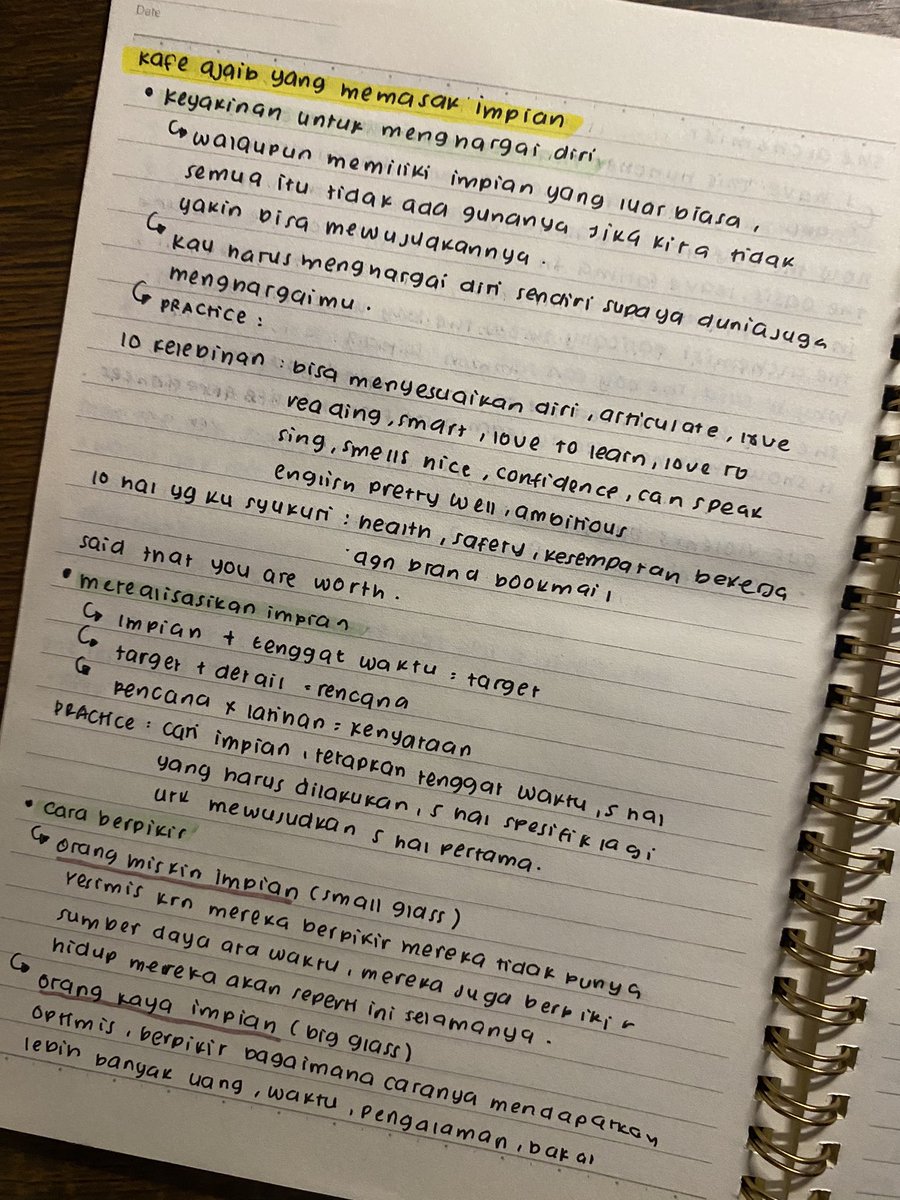 Date
kafe ajaib yang memasak impian
• keyakinan untuk menghargai diri
↳ walaupun memiliki impian yang luar biasa,
semua itu tidak ada gunanya jika kita tidak
yakin bisa mewujudkannya.
↳ kau harus menghargai diri sendiri supaya dunia juga
menghargaimu.
↳ PRACTICE :
10 kelebihan : bisa menyesuaikan diri, articulate, love
reading, smart, love to learn, love to
sing, smells nice, confidence, can speak
english pretty well, ambitious
10 hal yg ku syukuri : health, safety, kesempatan bekerja
dgn brand bookmail
said that you are worth.
• merealisasikan impian
↳ impian + tenggat waktu = target
↳ target + detail = rencana
↳ rencana x latihan = kenyataan
PRACTICE : cari impian, tetapkan tenggat waktu, 5 hal
yang harus dilakukan, 5 hal spesifik lagi
utk mewujudkan 5 hal pertama.
• cara berpikir
↳ orang miskin impian (small glass)
pesimis krn mereka berpikir mereka tidak punya
sumber daya ata waktu, mereka juga berpikir
hidup mereka akan seperti ini selamanya.
↳ orang kaya impian (big glass)
optimis, berpikir bagaimana caranya mendapatkan
lebih banyak uang, waktu, pengalaman, bakal